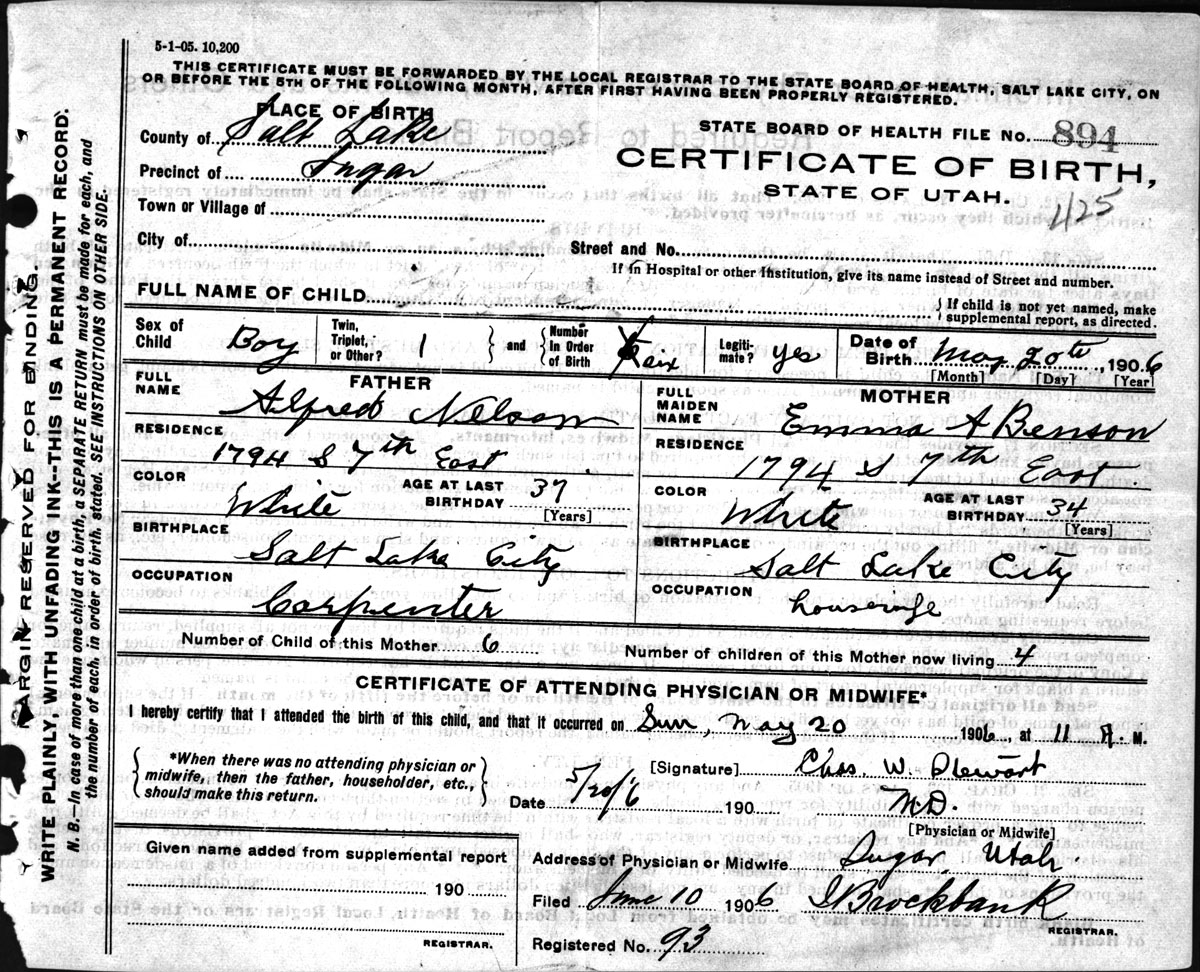 5-1-05. 10,200
THIS CERTIFICATE MUST BE FORWARDED BY THE LOCAL REGISTRAR TO THE STATE BOARD OF HEALTH, SALT LAKE CITY, ON
OR BEFORE THE 5TH OF THE FOLLOWING MONTH, AFTER FIRST HAVING BEEN PROPERLY REGISTERED.
PLACE OF BIRTH
County of Salt Lake
STATE BOARD OF HEALTH FILE NO. 894
Precinct of Sugar
CERTIFICATE OF BIRTH,
STATE OF UTAH.
1125
Town or Village of
City of
Street and No.
If in Hospital or other Institution, give its name instead of Street and number.
FULL NAME OF CHILD
{ If child is not yet named, make
supplemental report, as directed.
Sex of Child Boy Twin, Triplet, or Other? 1 } and { Number in Order of Birth six Legiti-mate? yes Date of Birth May 20th, 1906
[Month] [Day] [Year]
FATHER
FULL NAME Alfred Nelson
RESIDENCE
1794 S 7th East
COLOR White AGE AT LAST BIRTHDAY 37
[Years]
BIRTHPLACE
Salt Lake City
OCCUPATION
Carpenter
MOTHER
FULL MAIDEN NAME Emma A Benson
RESIDENCE
1794 S 7th East
COLOR White AGE AT LAST BIRTHDAY 34
[Years]
BIRTHPLACE
Salt Lake City
OCCUPATION
housewife
Number of Child of this Mother 6
Number of children of this Mother now living 4
CERTIFICATE OF ATTENDING PHYSICIAN OR MIDWIFE*
I hereby certify that I attended the birth of this child, and that it occurred on Sun, May 20 1906, at 11 A. M.
{ *When there was no attending physician or
midwife, then the father, householder, etc.,
should make this return. }
[Signature] Chas. W. Stewart
Date 5/20/6 190 M.D.
[Physician or Midwife]
Given name added from supplemental report
190
REGISTRAR.
Address of Physician or Midwife Sugar, Utah
Filed June 10 1906 Brockbank
REGISTRAR.
Registered No. 93
MARGIN RESERVED FOR BINDING.
WRITE PLAINLY, WITH UNFADING INK--THIS IS A PERMANENT RECORD.
N. B.—In case of more than one child at a birth, a SEPARATE RETURN must be made for each, and
the number of each, in order of birth, stated. SEE INSTRUCTIONS ON OTHER SIDE.